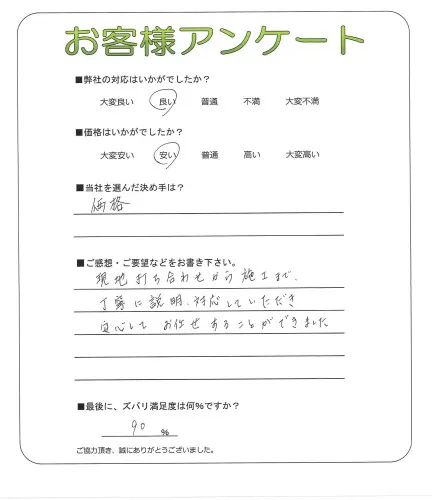 お客様アンケート
■弊社の対応はいかがでしたか？
大変良い 良い 普通 不満 大変不満
■価格はいかがでしたか？
大変安い 安い 普通 高い 大変高い
■当社を選んだ決め手は？
価格
■ご感想・ご要望などをお書き下さい。
現地打ち合わせから施工まで、
丁寧に説明、対応していただき
安心して お任せすることができました
■最後に、ズバリ満足度は何%ですか？
90 %
ご協力頂き、誠にありがとうございました。